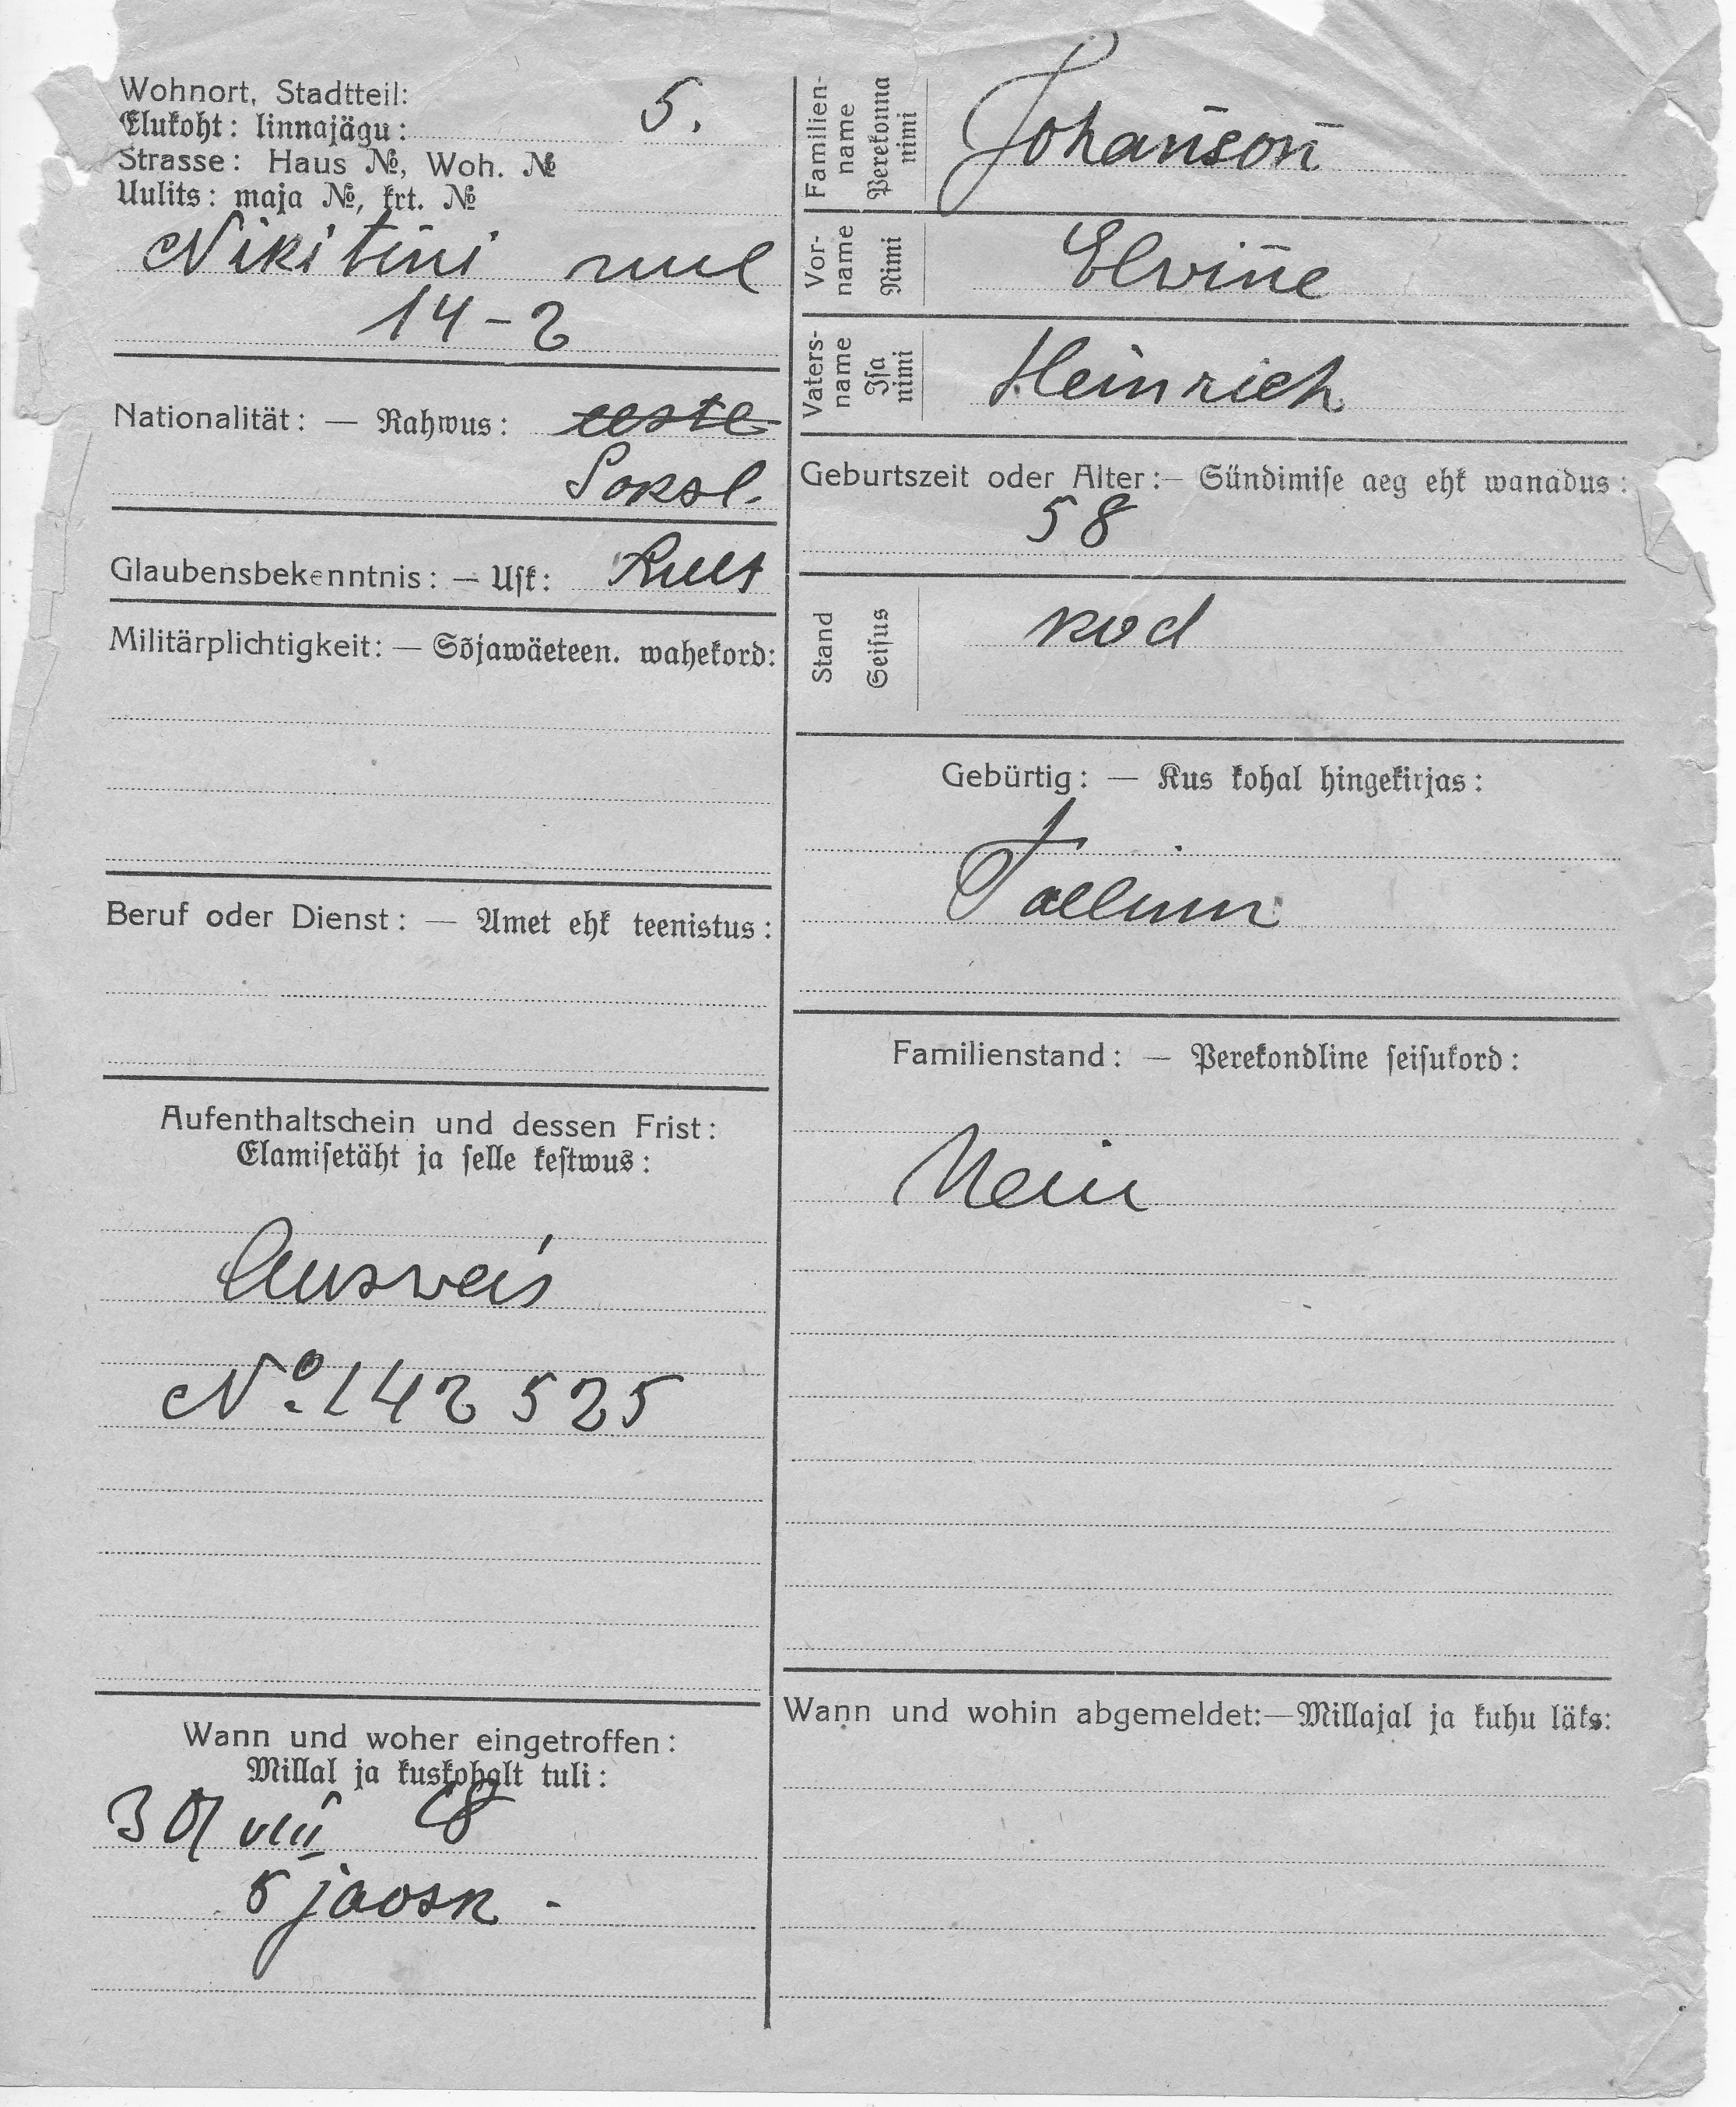 Wohnort, Stadtteil:
Elukoht: linnajägu: 5.
Strasse: Haus №, Woh. №
Uulits: maja №, krt. №
Nikitini
14-2
Nationalität: — Rahwus: eestl
Saksl.
Glaubensbekenntnis: — Usk: Lut
Militärplichtigkeit: — Sõjawäeteen. wahekord:
Beruf oder Dienst: — Amet ehk teenistus:
Aufenthaltschein und dessen Frist:
Elamisetäht ja selle kestwus:
Ausweis
№ 142 525
Wann und woher eingetroffen:
Millal ja kuskohalt tuli:
30/VIII 18
5 jaosk -
Familien-
name
Perekonna
nimi
Johanson
Vor-
name
Nimi
Elvine
Vaters-
name
Isa
nimi
Heinrich
Geburtszeit oder Alter:— Sündimise aeg ehk wanadus:
58
Stand
Seisus
kod
Gebürtig: — Kus kohal hingekirjas:
Tallinn
Familienstand: — Perekondline seisukord:
Nein
Wann und wohin abgemeldet:—Millajal ja kuhu läks: